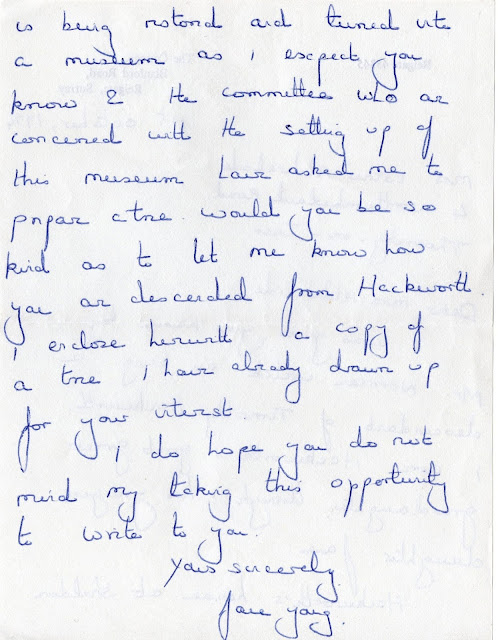 is being restored and turned into
a museum as I expect you
know & the committee who are
concerned with the setting up of
this museum have asked me to
prepare a tree. Would you be so
kind as to let me know how
you are descended from Hackworth.
I enclose herewith a copy of
a tree I have already drawn up
for your interest.
I do hope you do not
mind my taking this opportunity
to write to you.
Yours sincerely.
Jane Young